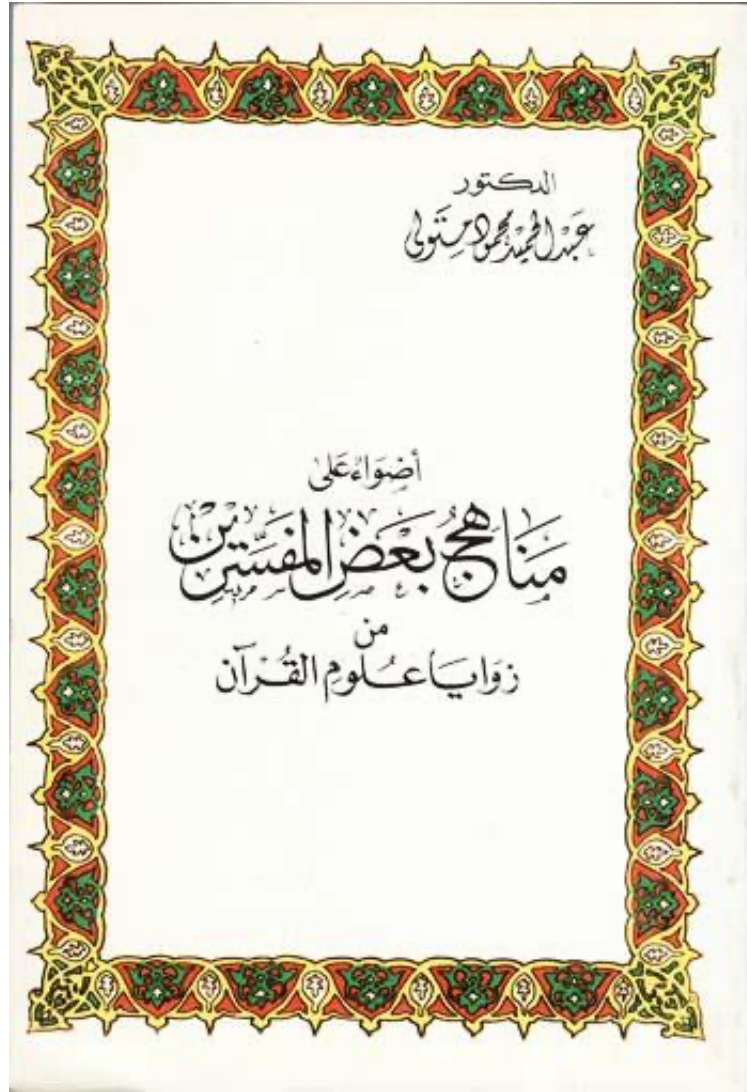 الدكتور
عَبْد الحميد محمود متولى
أضوَاء عَلى
مَناهج بعَض المفسّرين
من
زوَايا عُلومِ القُرآن